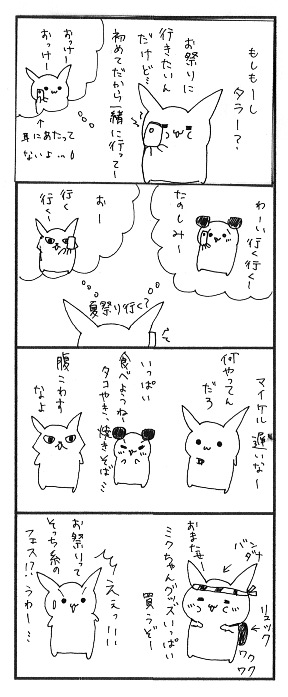 もしもーし
タラー?
お祭りに
行きたいん
だけど…
初めてだから一緒に行って〜
おけー
おっけー
耳にあたって
ないよ…
わーい行く行く〜
たのしみ〜
おー
行く
行く〜
夏祭り行く?
マイケル遅いな〜
何やってん
だろ
いっぱい
食べようね〜
タコやき、焼きそば…
腹こわす
なよ
バンダナ
リュック
ワクワク
おまたせー
ミクちゃんグッズいっぱい
買うぞー
ええっ!!
お祭りって
そっち系の
フェス!?うわー…